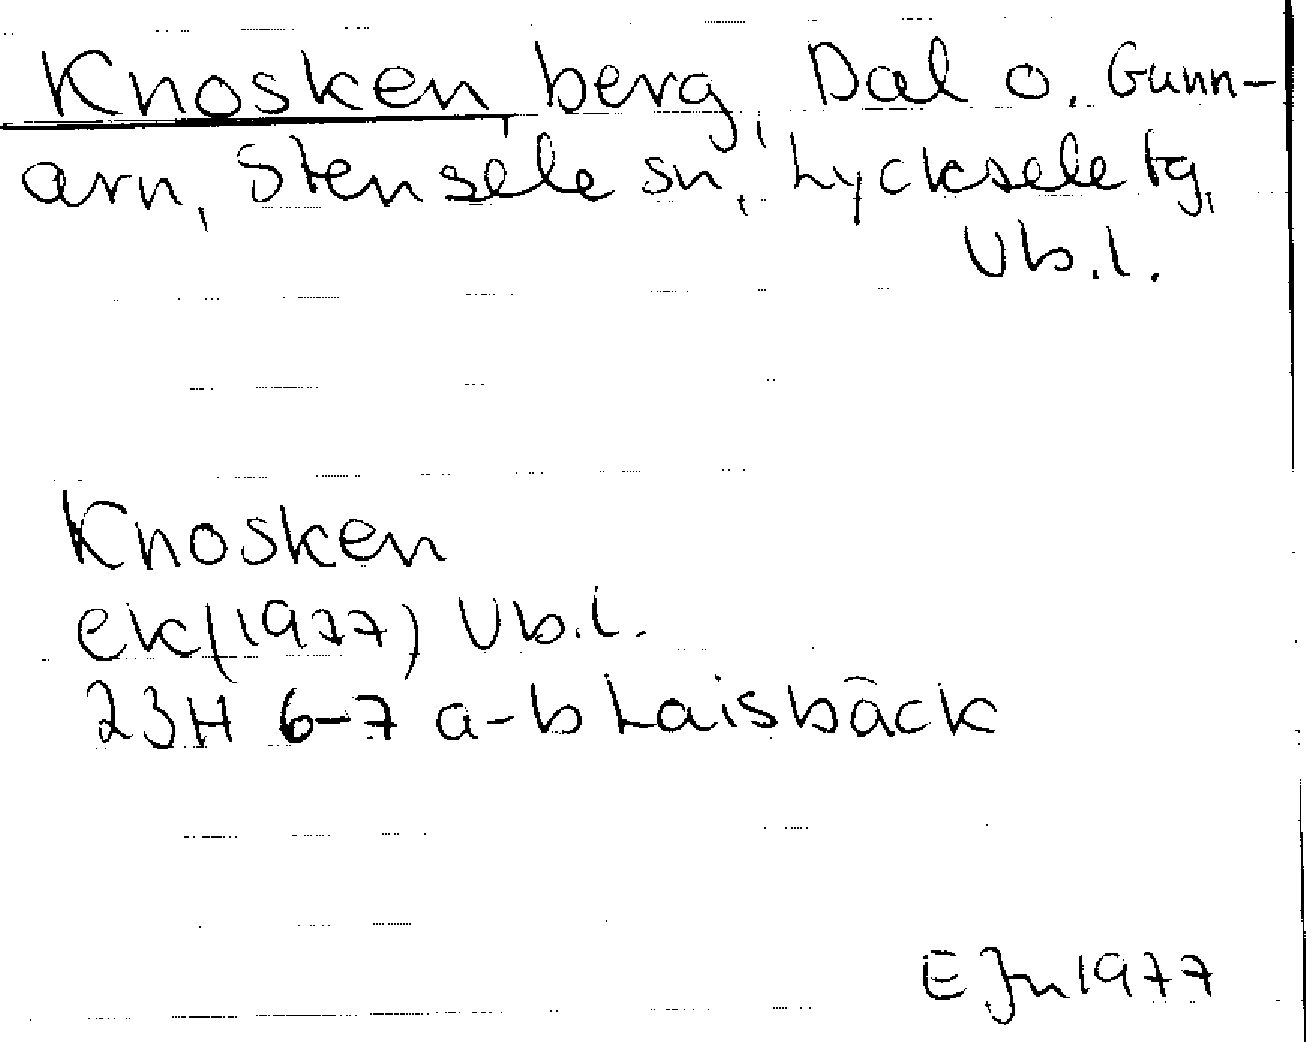 Knosken berg, Dal o. Gunn-
arn, Stensele sn, Lycksele tg,
Vb.l.
Knosken
ek(1977) Vb.l.
23H 6-7 a-b Laisbäck
E Jn 1977